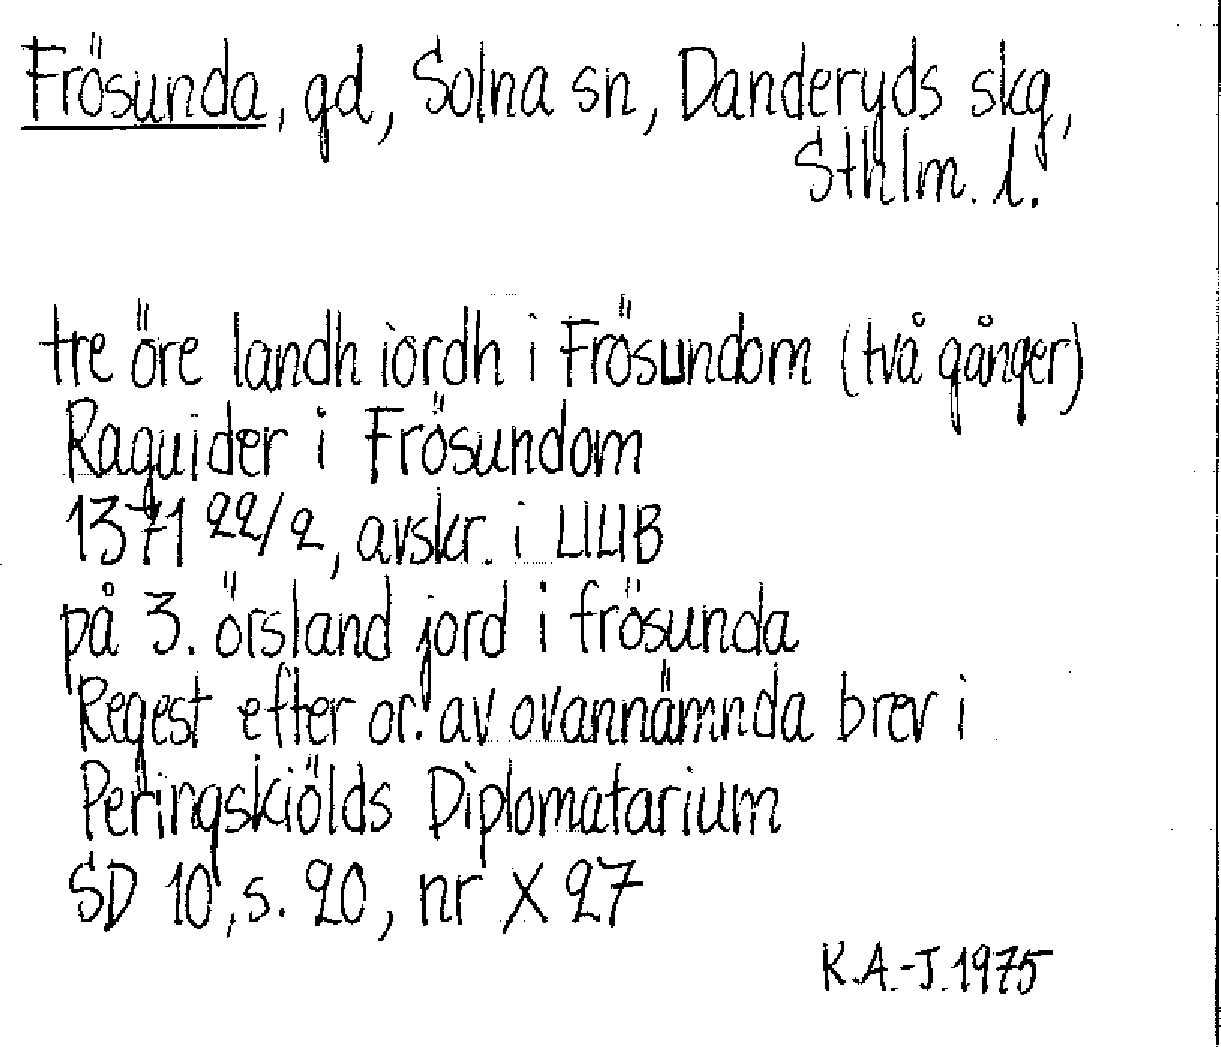 Frösunda, gd, Solna sn, Danderyds skg,
Sthlm. l.
tre öre landh iordh i Frösundom (två gånger)
Raguider i Frösundom
1371 22/2, avskr. i UUB
på 3. örsland jord i frösunda
Regest efter or. av ovannämnda brev i
Peringskiölds Diplomatarium
SD 10, s. 20, nr X 27
K.A.-J. 1975